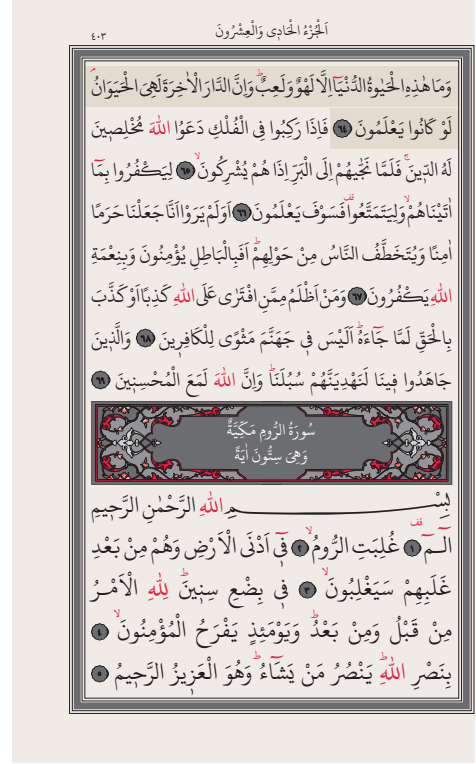 اَلْجُزْءُ الْحَادِى وَالْعِشْرُونَ
٤٠٣
وَمَا هٰذِهِ الْحَيٰوةُ الدُّنْيَٓا اِلَّا لَهْوٌ وَلَعِبٌۜ وَاِنَّ الدَّارَ الْاٰخِرَةَ لَهِىَ الْحَيَوَانُۢ
لَوْ كَانُوا يَعْلَمُونَ ﴿٦٤﴾ فَاِذَا رَكِبُوا فِى الْفُلْكِ دَعَوُا اللّٰهَ مُخْلِصِينَ
لَهُ الدِّينَۚ فَلَمَّا نَجّٰيهُمْ اِلَى الْبَرِّ اِذَا هُمْ يُشْرِكُونَۙ ﴿٦٥﴾ لِيَكْفُرُوا بِمَٓا
اٰتَيْنَاهُمْۙ وَلِيَتَمَتَّعُوا۠ فَسَوْفَ يَعْلَمُونَ ﴿٦٦﴾ اَوَلَمْ يَرَوْا اَنَّا جَعَلْنَا حَرَمًا
اٰمِنًا وَيُتَخَطَّفُ النَّاسُ مِنْ حَوْلِهِمْۜ اَفَبِالْبَاطِلِ يُؤْمِنُونَ وَبِنِعْمَةِ
اللّٰهِ يَكْفُرُونَ ﴿٦٧﴾ وَمَنْ اَظْلَمُ مِمَّنِ افْتَرٰى عَلَى اللّٰهِ كَذِبًا اَوْ كَذَّبَ
بِالْحَقِّ لَمَّا جَٓاءَهُۜ اَلَيْسَ فِى جَهَنَّمَ مَثْوًى لِلْكَافِرِينَ ﴿٦٨﴾ وَالَّذِينَ
جَاهَدُوا فِينَا لَنَهْدِيَنَّهُمْ سُبُلَنَاۜ وَاِنَّ اللّٰهَ لَمَعَ الْمُحْسِنِينَ ﴿٦٩﴾
سُورَةُ الرُّومِ مَكِّيَّةٌ
وَهِىَ سِتُّونَ اٰيَةً
بِسْمِ اللّٰهِ الرَّحْمٰنِ الرَّحِيمِ
الٓمٓ ﴿١﴾ غُلِبَتِ الرُّومُۙ ﴿٢﴾ فِٓى اَدْنَى الْاَرْضِ وَهُمْ مِنْ بَعْدِ
غَلَبِهِمْ سَيَغْلِبُونَۙ ﴿٣﴾ فِى بِضْعِ سِنِينَۜ لِلّٰهِ الْاَمْرُ
مِنْ قَبْلُ وَمِنْ بَعْدُۜ وَيَوْمَئِذٍ يَفْرَحُ الْمُؤْمِنُونَۙ ﴿٤﴾
بِنَصْرِ اللّٰهِۜ يَنْصُرُ مَنْ يَشَٓاءُۜ وَهُوَ الْعَزِيزُ الرَّحِيمُ ﴿٥﴾